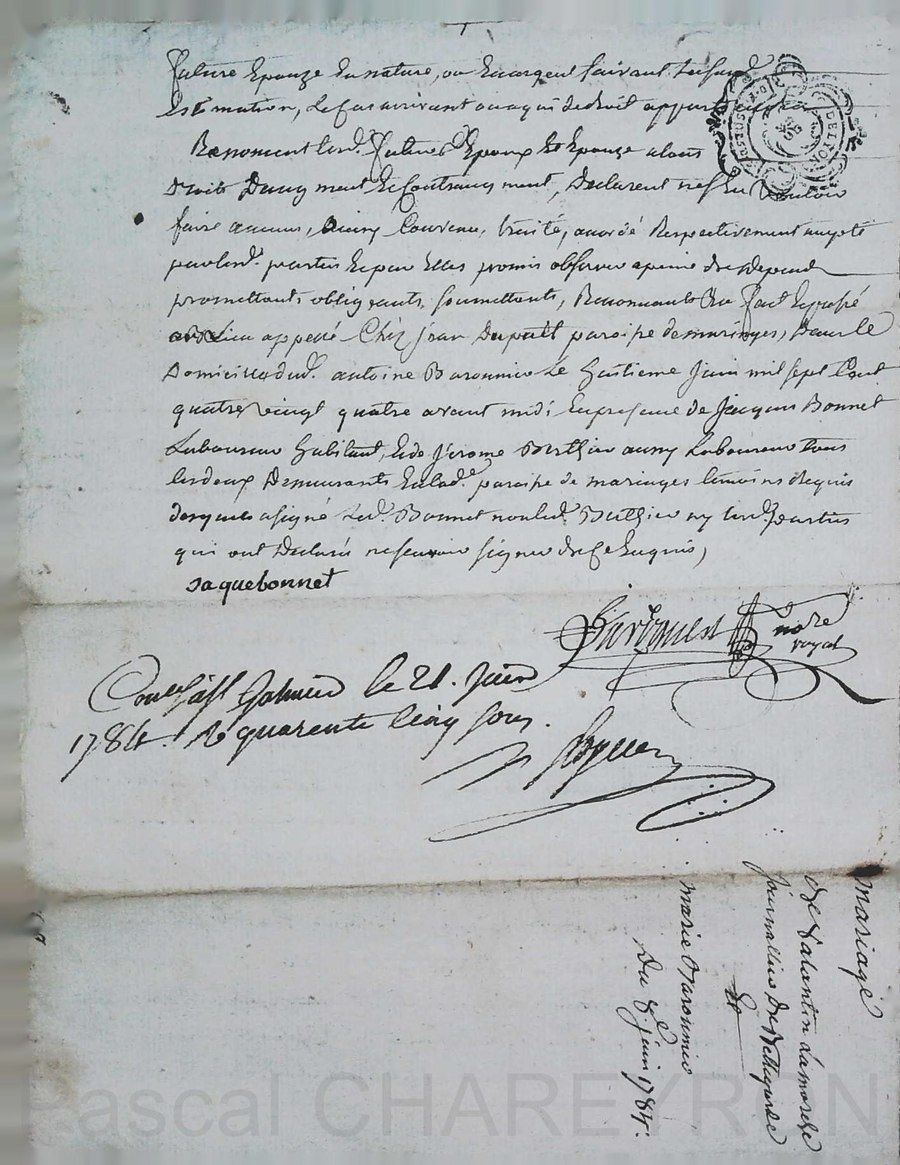 future Epouze En nature, ou En argent suivant
Estimation, Le Cas arrivant ou a qui de droit
Renoncent lesd. futurs Epoux Et Epouze a tous
Droits D'augment Et Contraugment, Declarent n'en En vouloir
faire aucuns, Convenu, traité, accordé Respectivement accepté
par lesd. parties Et par Elles promis observer a peine de depend
promettants, obligeants, soumettants, Renonceants &a fait Et passé
au Lieu appellé Chez jean Dupult paroisse de maringes, Dans le
Domicille dud. antoine Baronnier Le huitieme juin mil sept Cent
quatre vingt quatre avant midi En presence de jacques Bonnet
Laboureur habitant, Et de jérome Berthier aussy Laboureur tous
les deux Demeurants En lad. paroisse de maringes temoins Requis
desquels a signé Led. Bonnet non led. Berthier ny lesd. parties
qui ont Declaré ne scavoir signer de Ce Enquis,
jaquebonnet
nore
royal
Conlé à st Galmier le 21. juin
1784. R quarente Cinq sous.
mariage
de valantin lamarche
journallier De Bellegarde
Et
marie Baronnier
Du 8e juin 1784.
DELYON
Pascal CHAREYRON